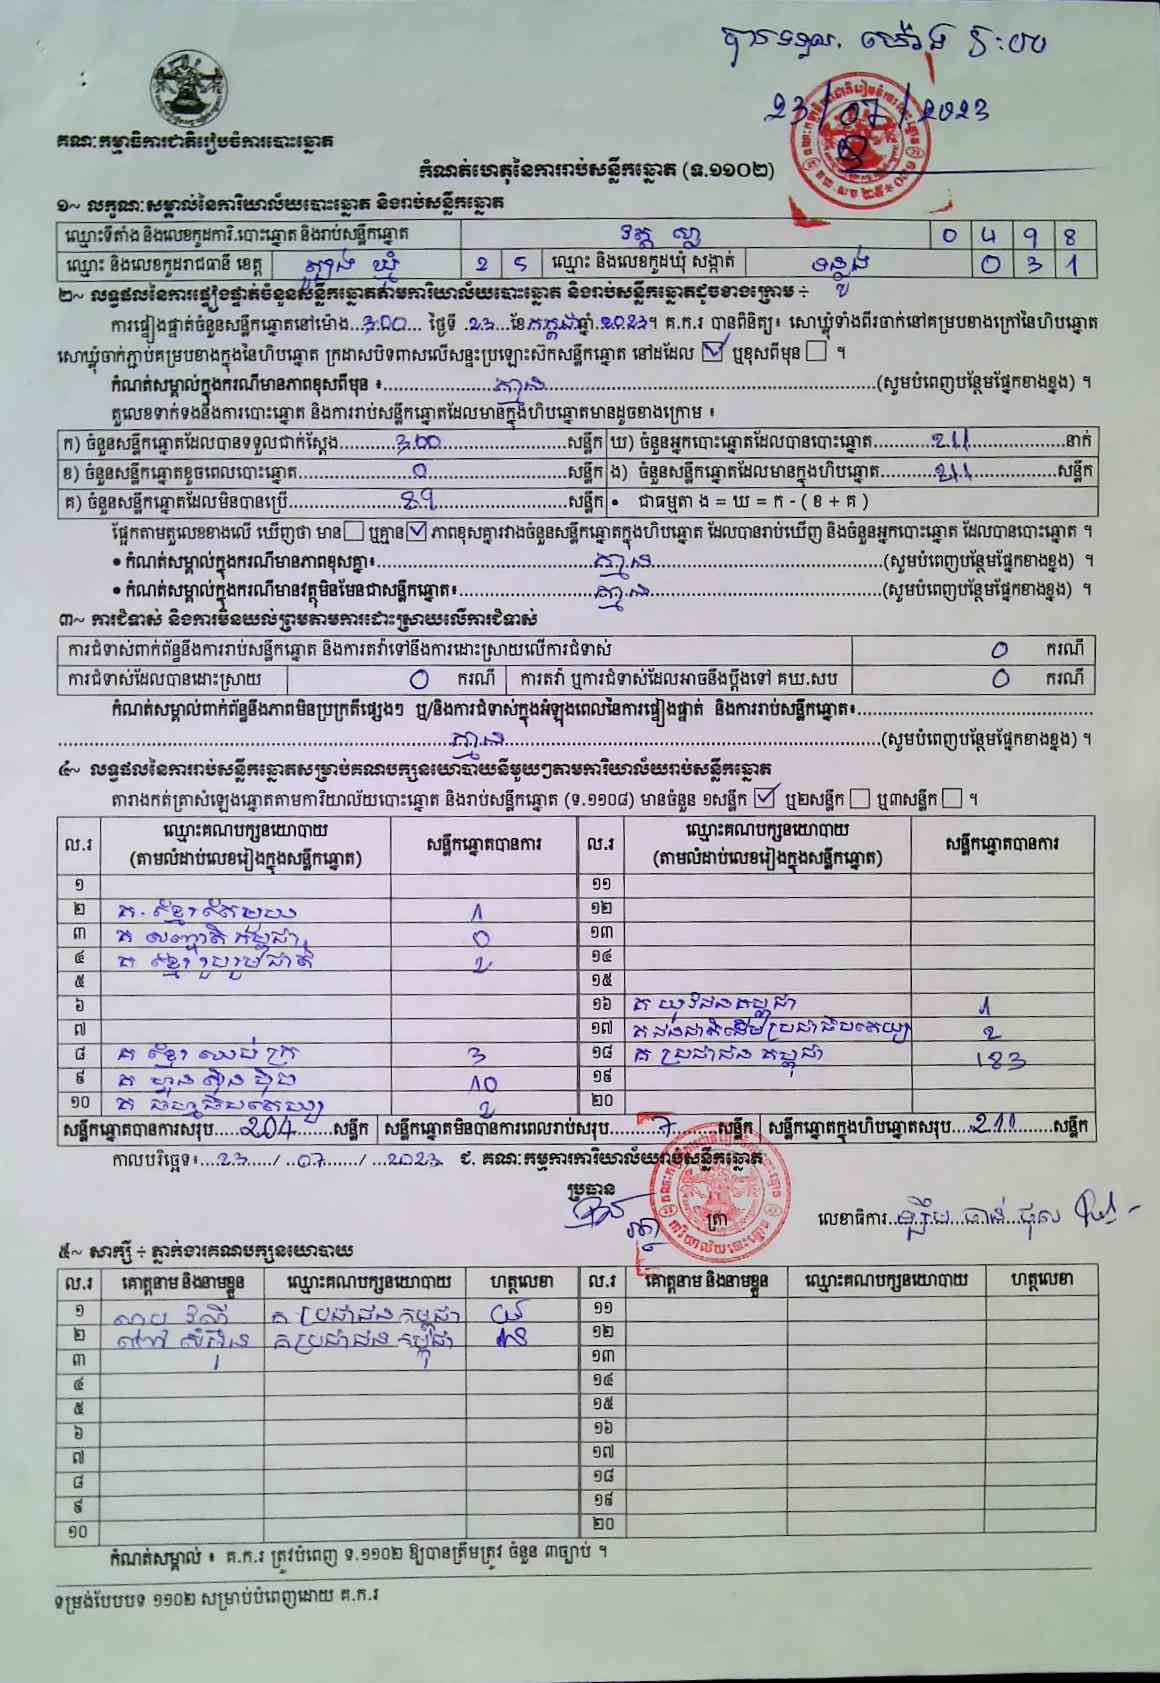 បានទទួល ម៉ោង ៦:០០
23/07/2023
គណៈកម្មាធិការជាតិរៀបចំការបោះឆ្នោត
កំណត់ហេតុនៃការរាប់សន្លឹកឆ្នោត (ទ.១១០២)
១~ លក្ខណៈសម្គាល់នៃការិយាល័យបោះឆ្នោត និងរាប់សន្លឹកឆ្នោត
ឈ្មោះទីតាំង និងលេខកូដការិ.បោះឆ្នោត និងរាប់សន្លឹកឆ្នោត វត្ត 0 4 9 8
ឈ្មោះ និងលេខកូដរាជធានី ខេត្ត ត្បូង ឃ្មុំ 2 5 ឈ្មោះ និងលេខកូដឃុំ សង្កាត់ ទន្លូង 0 3 1
២~ លទ្ធផលនៃការផ្ទៀងផ្ទាត់ចំនួនសន្លឹកឆ្នោតតាមការិយាល័យបោះឆ្នោត និងរាប់សន្លឹកឆ្នោតដូចខាងក្រោម ÷
ការផ្ទៀងផ្ទាត់ចំនួនសន្លឹកឆ្នោតនៅម៉ោង...3:00... ថ្ងៃទី .23...ខែកក្កដាឆ្នាំ.2023។ គ.ក.រ បានពិនិត្យ៖ សោឃ្លុំទាំងពីរចាក់នៅគម្របខាងក្រៅនៃហិបឆ្នោត
សោឃ្លុំចាក់ភ្ជាប់គម្របខាងក្នុងនៃហិបឆ្នោត ក្រដាសបិទពាសលើសន្ទះប្រឡោះស៊កសន្លឹកឆ្នោត នៅដដែល ☑ ឬខុសពីមុន ☐ ។
កំណត់សម្គាល់ក្នុងករណីមានភាពខុសពីមុន ៖......គ្មាន......(សូមបំពេញបន្ថែមផ្នែកខាងខ្នង) ។
តួលេខទាក់ទងនឹងការបោះឆ្នោត និងការរាប់សន្លឹកឆ្នោតដែលមានក្នុងហិបឆ្នោតមានដូចខាងក្រោម ៖
ក) ចំនួនសន្លឹកឆ្នោតដែលបានទទួលជាក់ស្តែង......300......សន្លឹក ឃ) ចំនួនអ្នកបោះឆ្នោតដែលបានបោះឆ្នោត......211......នាក់
ខ) ចំនួនសន្លឹកឆ្នោតខូចពេលបោះឆ្នោត......0......សន្លឹក ង) ចំនួនសន្លឹកឆ្នោតដែលមានក្នុងហិបឆ្នោត......211......សន្លឹក
គ) ចំនួនសន្លឹកឆ្នោតដែលមិនបានប្រើ......89......សន្លឹក • ជាធម្មតា ង = ឃ = ក - ( ខ + គ )
ផ្អែកតាមតួលេខខាងលើ ឃើញថា មាន☐ ឬគ្មាន☑ ភាពខុសគ្នារវាងចំនួនសន្លឹកឆ្នោតក្នុងហិបឆ្នោត ដែលបានរាប់ឃើញ និងចំនួនអ្នកបោះឆ្នោត ដែលបានបោះឆ្នោត ។
• កំណត់សម្គាល់ក្នុងករណីមានភាពខុសគ្នា៖......គ្មាន......(សូមបំពេញបន្ថែមផ្នែកខាងខ្នង) ។
• កំណត់សម្គាល់ក្នុងករណីមានវត្ថុមិនមែនជាសន្លឹកឆ្នោត៖......គ្មាន......(សូមបំពេញបន្ថែមផ្នែកខាងខ្នង) ។
៣~ ការជំទាស់ និងការមិនយល់ព្រមតាមការដោះស្រាយលើការជំទាស់
ការជំទាស់ពាក់ព័ន្ធនឹងការរាប់សន្លឹកឆ្នោត និងការតវ៉ាទៅនឹងការដោះស្រាយលើការជំទាស់ 0 ករណី
ការជំទាស់ដែលបានដោះស្រាយ 0 ករណី ការតវ៉ា ឬការជំទាស់ដែលអាចនឹងប្តឹងទៅ គឃ.សប 0 ករណី
កំណត់សម្គាល់ពាក់ព័ន្ធនឹងភាពមិនប្រក្រតីផ្សេងៗ ឬ/និងការជំទាស់ក្នុងអំឡុងពេលនៃការផ្ទៀងផ្ទាត់ និងការរាប់សន្លឹកឆ្នោត៖......
......គ្មាន......(សូមបំពេញបន្ថែមផ្នែកខាងខ្នង) ។
៤~ លទ្ធផលនៃការរាប់សន្លឹកឆ្នោតសម្រាប់គណបក្សនយោបាយនីមួយៗតាមការិយាល័យរាប់សន្លឹកឆ្នោត
តារាងកត់ត្រាសំឡេងឆ្នោតតាមការិយាល័យបោះឆ្នោត និងរាប់សន្លឹកឆ្នោត (ទ.១១០៨) មានចំនួន ១សន្លឹក ☑ ឬ២សន្លឹក ☐ ឬ៣សន្លឹក ☐ ។
ល.រ ឈ្មោះគណបក្សនយោបាយ (តាមលំដាប់លេខរៀងក្នុងសន្លឹកឆ្នោត) សន្លឹកឆ្នោតបានការ ល.រ ឈ្មោះគណបក្សនយោបាយ (តាមលំដាប់លេខរៀងក្នុងសន្លឹកឆ្នោត) សន្លឹកឆ្នោតបានការ
១ ១១
២ គ. ខ្មែរតែមួយ 1 ១២
៣ គ សញ្ជាតិកម្ពុជា 0 ១៣
៤ គ ខ្មែររួបរួមជាតិ 2 ១៤
៥ ១៥
៦ ១៦ គ យុវជនកម្ពុជា 1
៧ ១៧ គ ដើម ប្រជាធិបតេយ្យ 2
៨ គ ខ្មែរ ឈប់ ក្រ 3 ១៨ គ ប្រជាជន កម្ពុជា 183
៩ គ ហ្វុន ស៊ិន ប៉ិច 10 ១៩
១០ គ ធម្មាធិបតេយ្យ 2 ២០
សន្លឹកឆ្នោតបានការសរុប.....204.....សន្លឹក សន្លឹកឆ្នោតមិនបានការពេលរាប់សរុប.....7.....សន្លឹក សន្លឹកឆ្នោតក្នុងហិបឆ្នោតសរុប....211....សន្លឹក
កាលបរិច្ឆេទ៖...23.../...07.../...2023 ៩. គណៈកម្មការការិយាល័យរាប់សន្លឹកឆ្នោត
ប្រធាន
ត្រា លេខាធិការ
៥~ សាក្សី ÷ ភ្នាក់ងារគណបក្សនយោបាយ
ល.រ គោត្តនាម និងនាមខ្លួន ឈ្មោះគណបក្សនយោបាយ ហត្ថលេខា ល.រ គោត្តនាម និងនាមខ្លួន ឈ្មោះគណបក្សនយោបាយ ហត្ថលេខា
១ គ ប្រជាជន កម្ពុជា ១១
២ គ ប្រជាជន កម្ពុជា ១២
៣ ១៣
៤ ១៤
៥ ១៥
៦ ១៦
៧ ១៧
៨ ១៨
៩ ១៩
១០ ២០
កំណត់សម្គាល់ ៖ គ.ក.រ ត្រូវបំពេញ ទ.១១០២ ឱ្យបានត្រឹមត្រូវ ចំនួន ៣ច្បាប់ ។
ទម្រង់បែបបទ ១១០២ សម្រាប់បំពេញដោយ គ.ក.រ